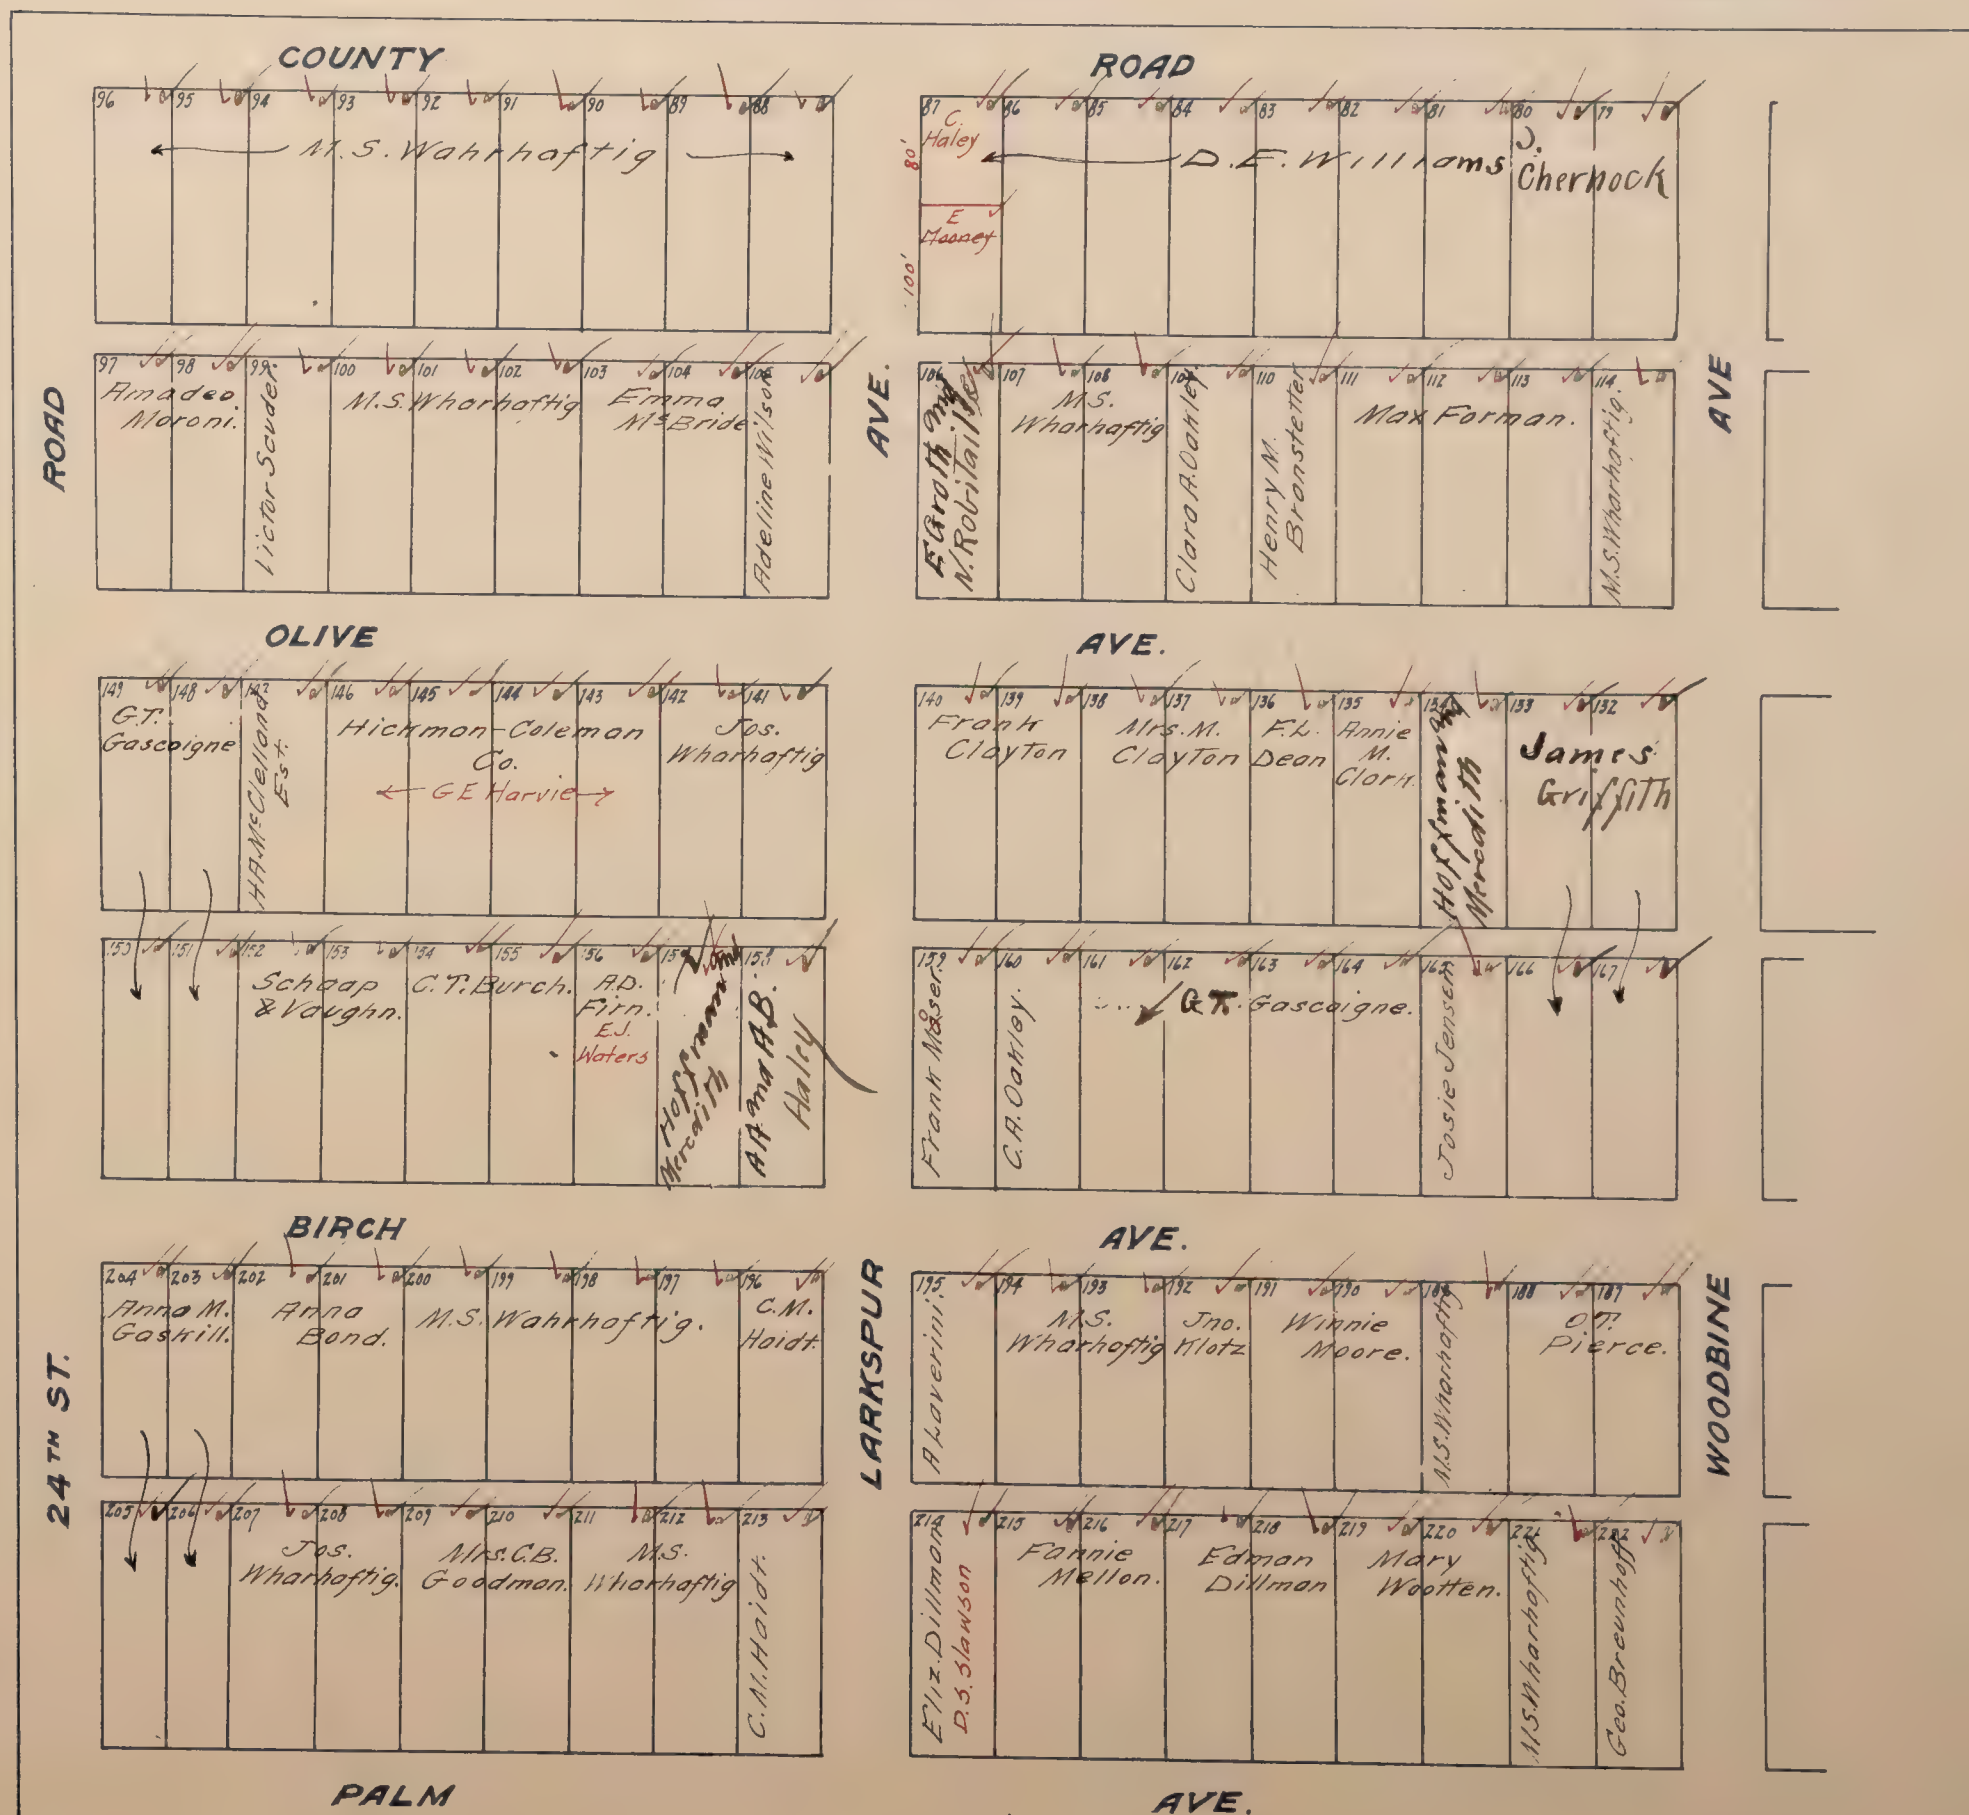 COUNTY ROAD
96 95 94 93 92 91 90 89 88
M.S. Wahrhaftig
87 86 85 84 83 82 81 80 79
C.
Haley
80'
E
Mooney
100'
D.E. Williams
J.
Chernock
ROAD
AVE.
AVE
97 98 99 100 101 102 103 104 105
Amadeo
Moroni.
Victor Scuder.
M.S. Wharhaftig
Emma
McBride
Adeline Wilson
106 107 108 109 110 111 112 113 114
E Groth and
N. Robitaille
M.S.
Wharhaftig
Clara A. Oakley.
Henry M.
Bronstetter
Max Forman.
M.S. Wharhaftig.
OLIVE AVE.
149 148 147 146 145 144 143 142 141
G.T.
Gascoigne
H.A. McClelland
Est.
Hickman-Coleman
Co.
G E Harvie
Jos.
Wharhaftig
140 139 138 137 136 135 134 133 132
Frank
Clayton
Mrs. M.
Clayton
F.L.
Dean
Annie
M.
Clark.
Hoffman and
Meredith
James
Griffith
150 151 152 153 154 155 156 157 158
Schaap
& Vaughn.
C.T. Burch.
A.D.
Firn.
E.J.
Waters
Hoffman and
Meredith
A A and A.B.
Haley
159 160 161 162 163 164 165 166 167
Frank Moser.
C.A. Oakley.
G.T. Gascoigne.
Josie Jensen
BIRCH AVE.
24TH ST.
LARKSPUR
WOODBINE
204 203 202 201 200 199 198 197 196
Anna M.
Gaskill.
Anna
Bond.
M.S. Wahrhaftig.
C.M.
Haidt.
195 194 193 192 191 190 189 188 187
A Laverini.
M.S.
Wharhaftig
Jno.
Klotz
Winnie
Moore.
M.S. Wharhaftig
O.T.
Pierce.
205 206 207 208 209 210 211 212 213
Jos.
Wharhaftig.
Mrs. C.B.
Goodman.
M.S.
Wharhaftig
C.M. Haidt.
214 215 216 217 218 219 220 221 222
Eliz. Dillman
D.S. Slawson
Fannie
Mellon.
Edman
Dillman
Mary
Wootten.
M.S. Wharhaftig
Geo. Breunhoff
PALM AVE.